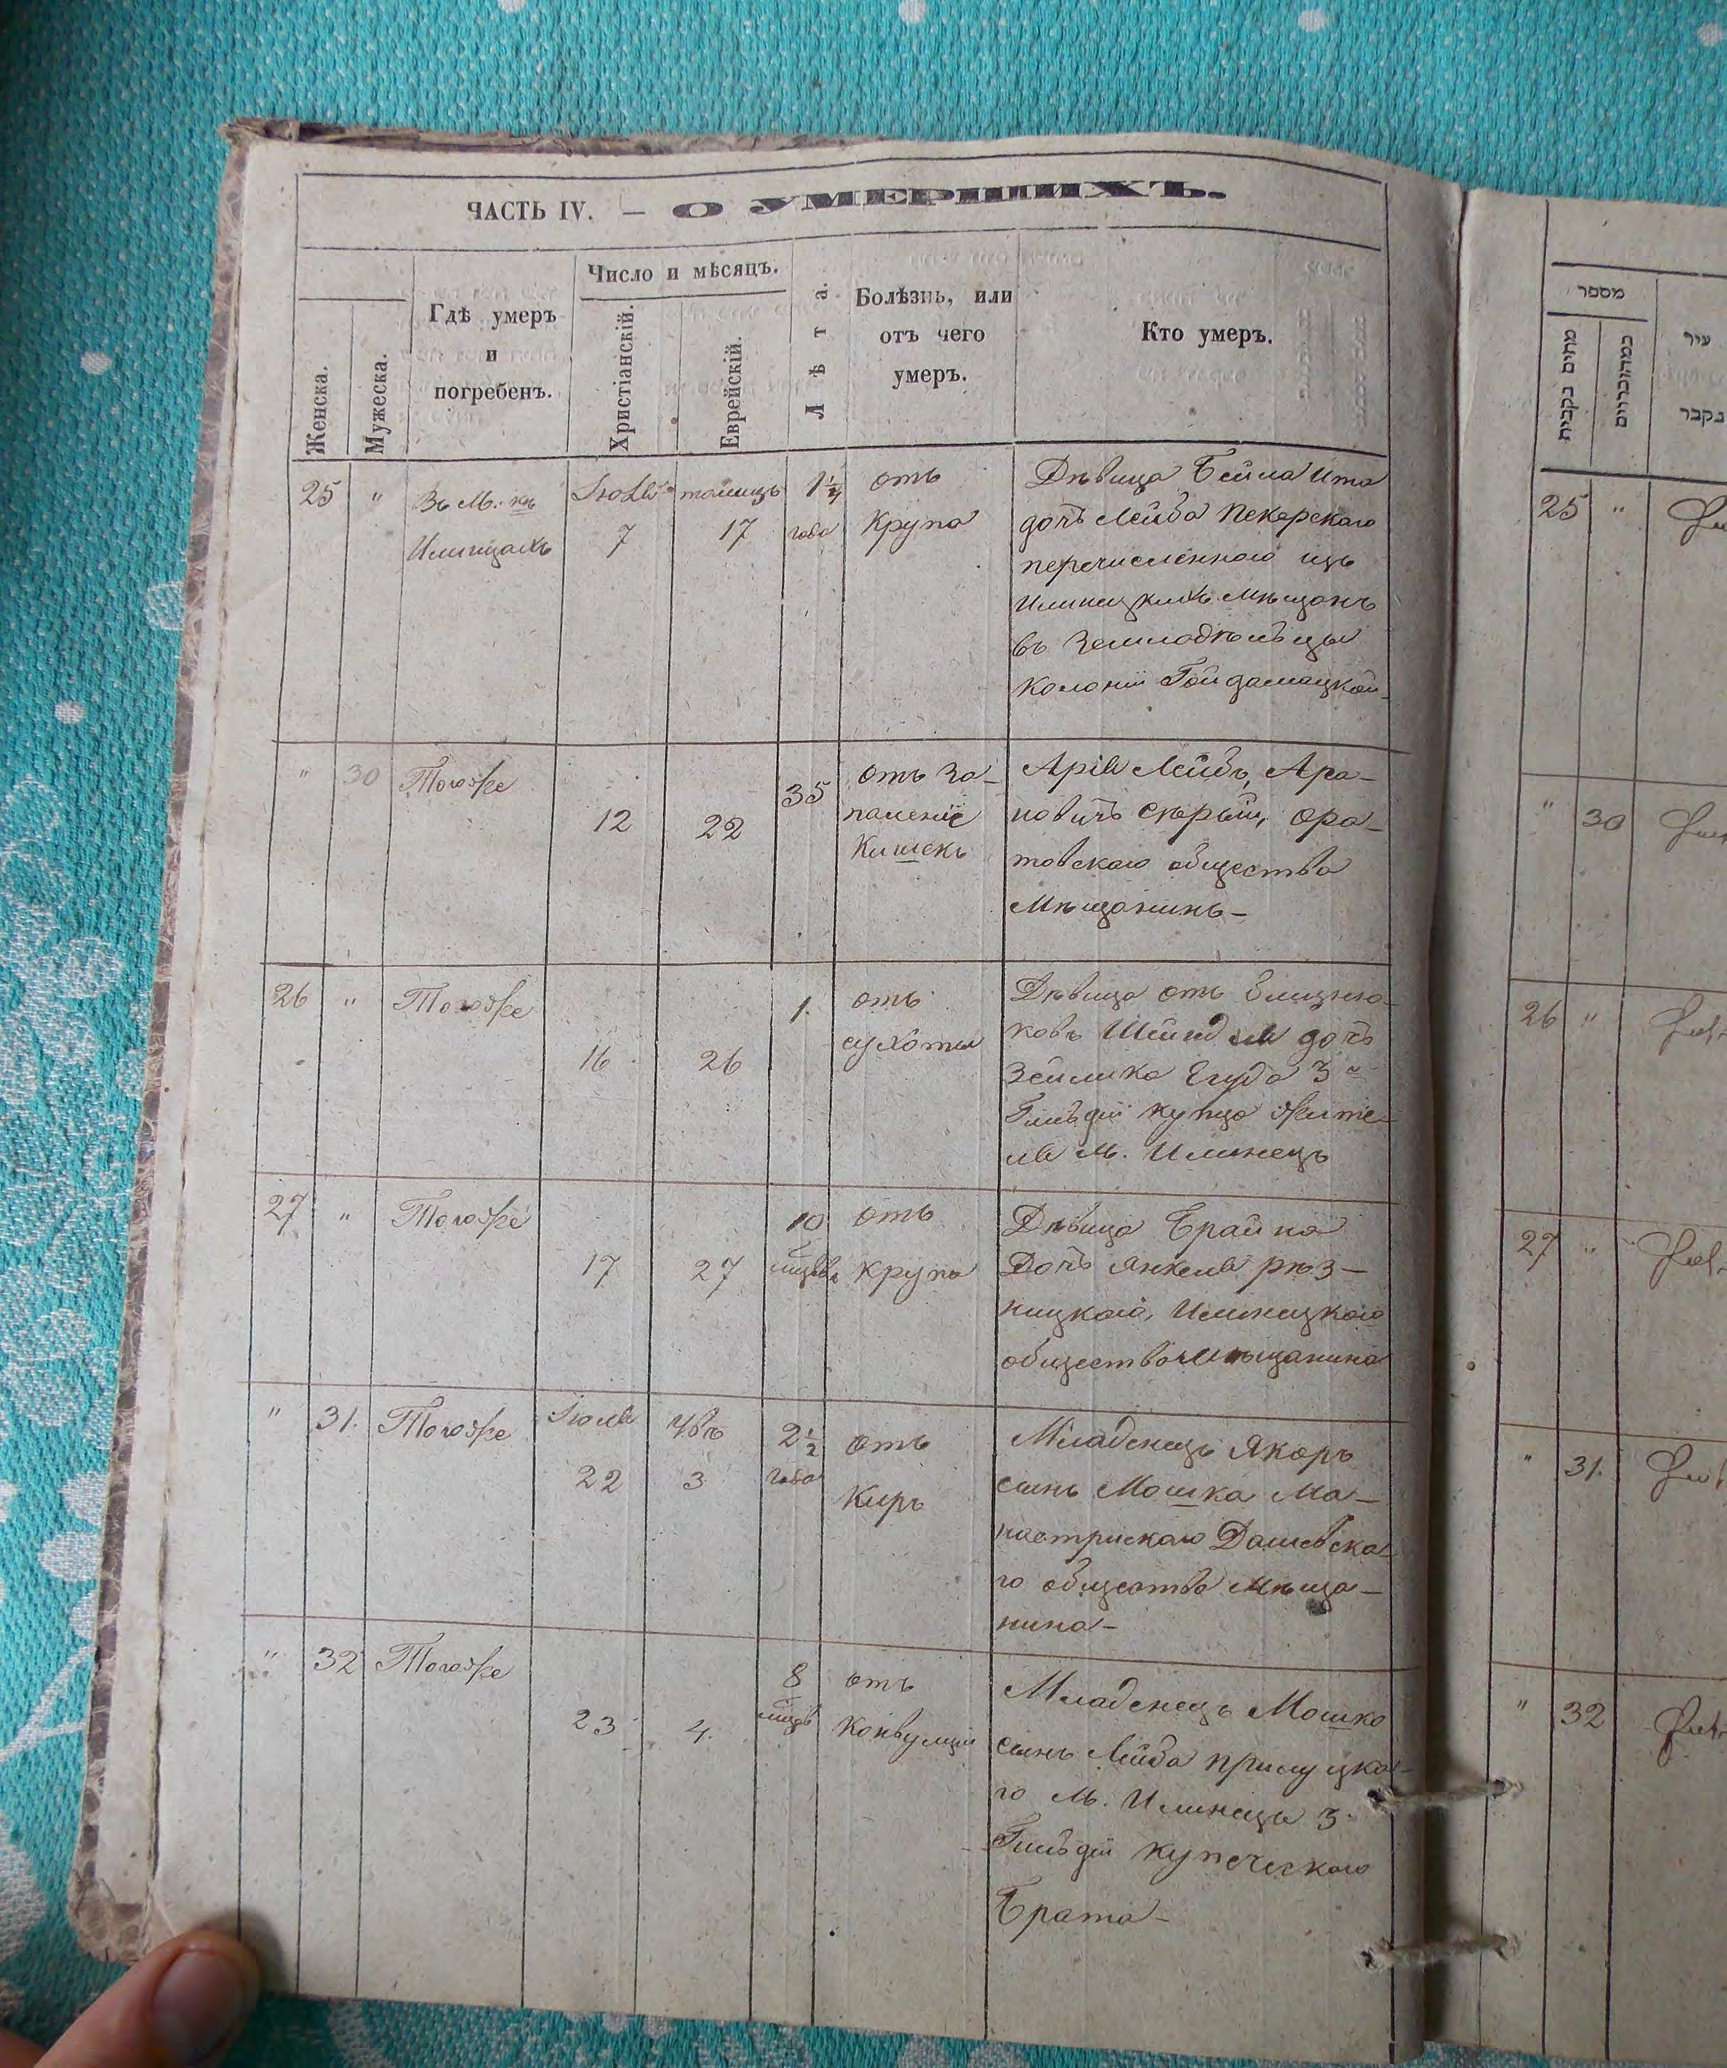 ЧАСТЬ IV. — О УМЕРШИХЪ.
Женска.
Мужеска.
Гдѣ умеръ
и
погребенъ.
Число и мѣсяцъ.
Христіанскій.
Еврейскій.
Лѣта.
Болѣзнь, или
отъ чего
умеръ.
Кто умеръ.
25 " Въ М.
Илинцахъ
7 17
1 1/4
года
отъ
Крупа
Дѣвица Бейла Ита
дочь Лейба Пекерскаго
перечисленного изъ
Илинецкихъ Мѣщанъ
въ Земледѣльцы
Колоніи Гайдамацкой
" 30 Тогоже 12 22 35
отъ за-
паленіе
Кишекъ
Арія Лейбъ, Аро-
новичъ Сѣрый, Ора-
товского общества
Мѣщанинъ—
26 " Тогоже 16 26 1.
отъ
сухоты
Дѣвица отъ близню-
ковъ Шейндля дочь
Зейлика Егуда 3й
Гильдіи купца жите-
ля М. Илинецъ
27 " Тогоже 17 27 10
отъ
крупа
Дѣвица Брайна
Дочь Янкеля рѣз-
ницкого, Илинецкого
общества Мѣщанина
" 31. Тогоже Іюля
22 3
2 1/2
года
отъ
Киръ
Младенецъ Якоръ
сынъ Мошка Ма-
настрискаго Дашевска-
го общества мѣща-
нина—
" 32 Тогоже 23 4. 8
отъ
Конвульціи
Младенецъ Мошко
сынъ Лейба прилуцка-
го М. Илинецъ 3.
Гильдіи купеческого
Брата—
מספר
עיר
נקבר
25 "
" 30
26 "
27 "
" 31.
" 32